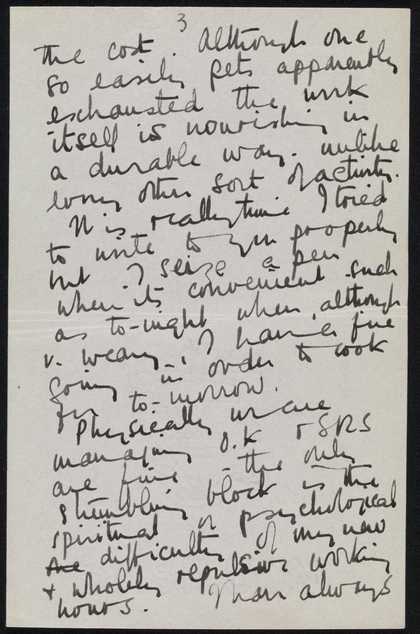 3
the cost. Although one
so easily gets apparently
exhausted the work
itself is nourishing in
a durable way. unlike
every other sort of activity.
It is really time I tried
to write to you properly
but I seize a pen
when its convenient such
as to-night when, although
v. weary, I have a fire
going in order to cook
for to-morrow.
Physically we are
managing O.K +
are fine - the only
stumbling block is the
spiritual or psychological
difficulty of my new
+ wholely repulsive working
hours. Man always